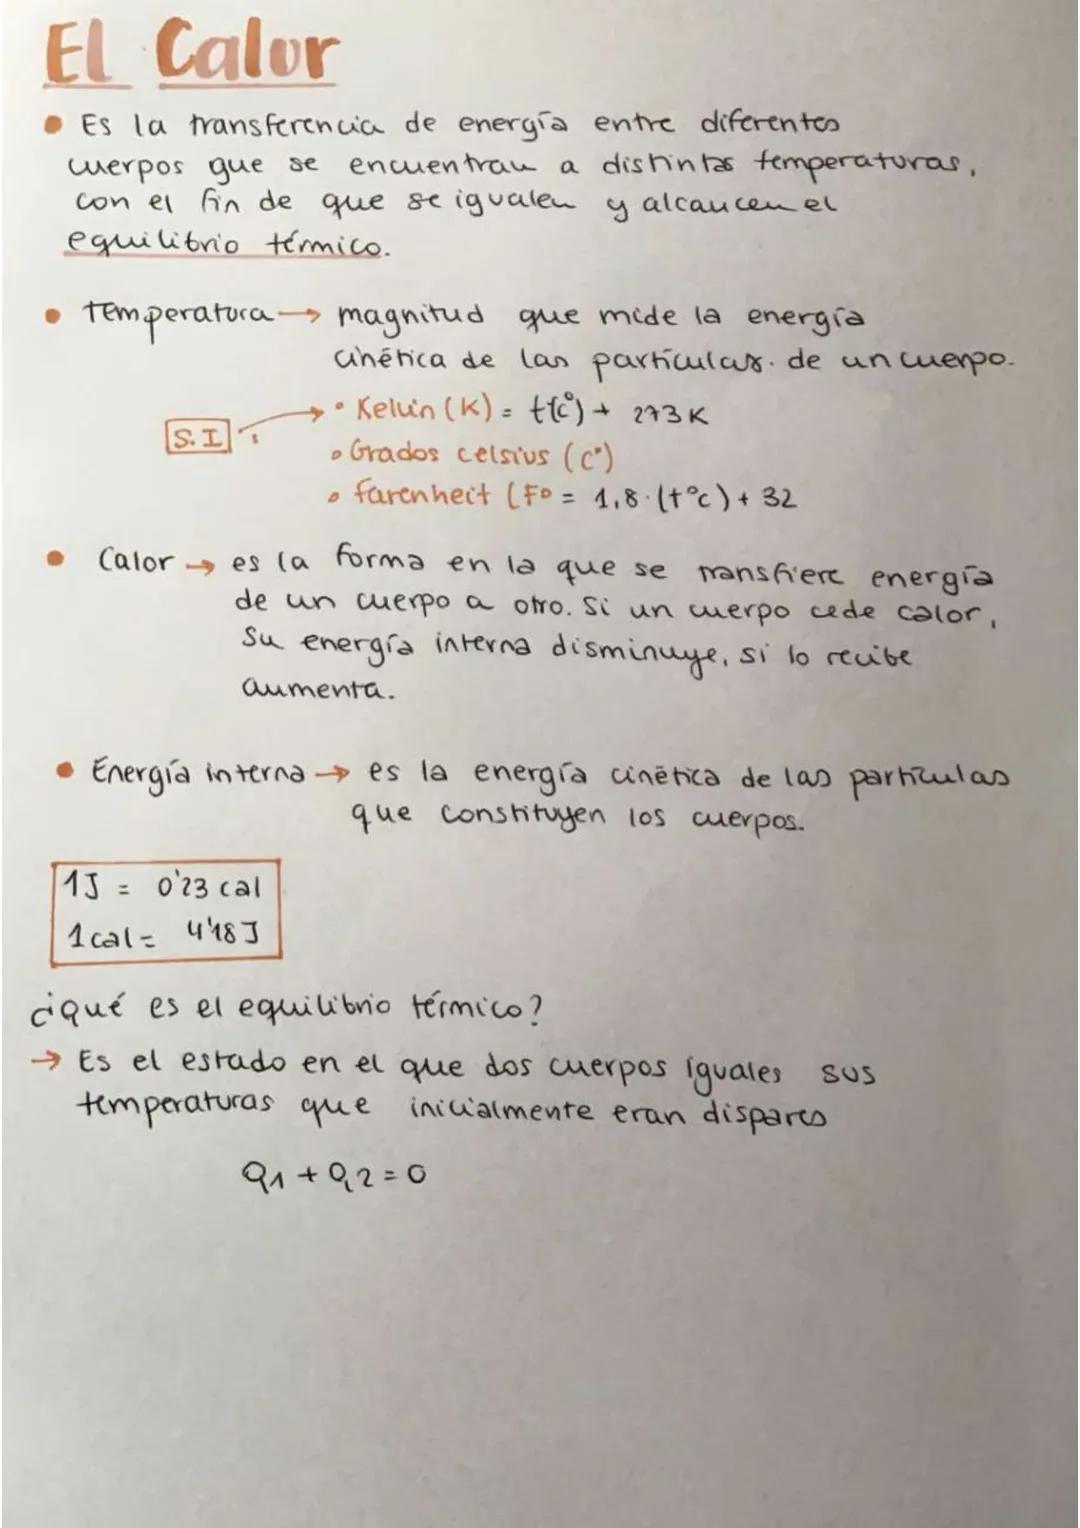 El Calor
• Es la transferencia de energía entre diferentes
cuerpos que se encuentran a distintas temperaturas,
con el fin de que se igualen y alcancen el
equilibrio térmico.
• Temperatura → magnitud que mide la energía
cinética de las partículas. de un cuerpo.
S.I → • Kelvin (K) = t(cº) + 273 K
• Grados celsius (cº)
• farenheit (Fº = 1,8·(tºc) + 32
• Calor → es la forma en la que se transfiere energía
de un cuerpo a otro. Si un cuerpo cede calor,
su energía interna disminuye, si lo recibe
aumenta.
• Energía interna → es la energía cinética de las partículas
que constituyen los cuerpos.
1J = 0'23 cal
1 cal = 4'18 J
¿qué es el equilibrio térmico?
→ Es el estado en el que dos cuerpos iguales sus
temperaturas que inicialmente eran dispares
Q1 + Q2 = 0